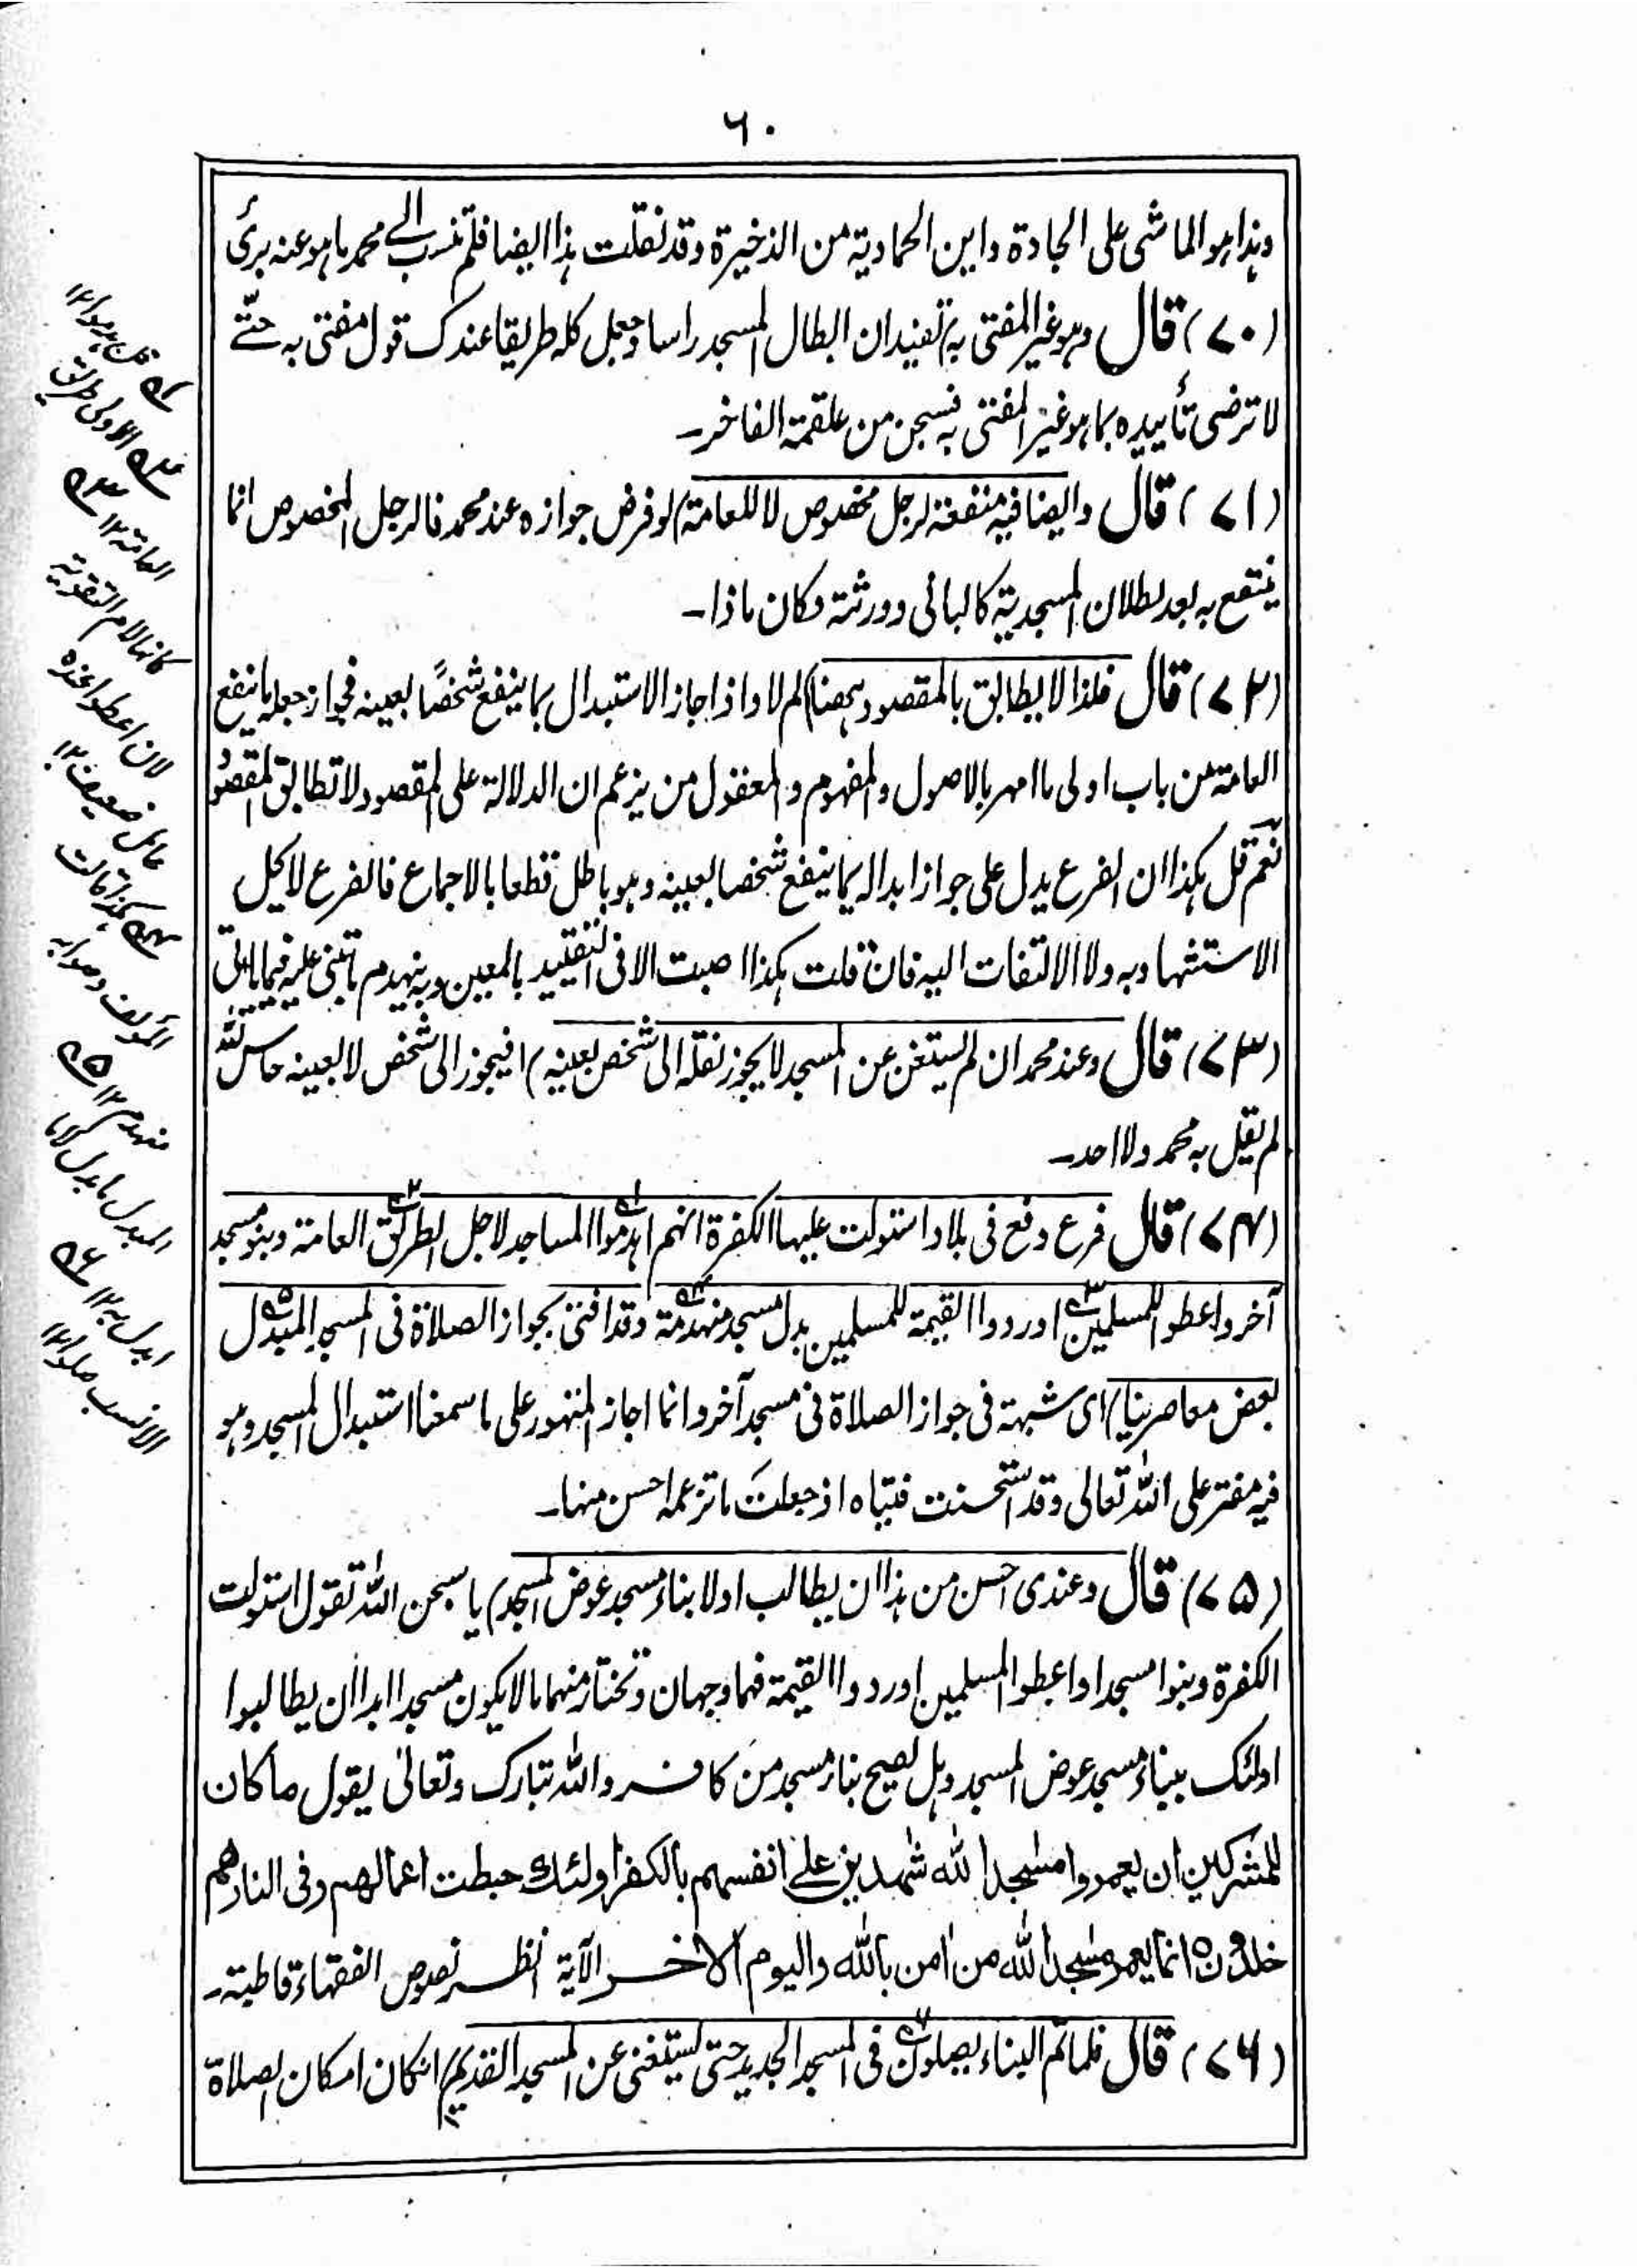 ٦٠
وہذا ہو الماشی علی الجادۃ واین الحمادیۃ من الذخیرۃ وقد نقلت ہذا ایضا فلم تنسب الے محمد ما ہو عنہ برئ
(۷۰) قال وہو غیر المفتی بہ) تفید ان ابطال المسجد راسا وجعل کلہ طریقا عندک قول مفتی بہ حتّے
لا ترضی تأییدہ بما ہو غیر المفتی بہ فسبحن من علقمۃ الفاخر۔
(۷۱) قال وایضا فیہ منفعۃ لرجل مخصوص لا للعامۃ) لو فرض جوازہ عند محمد فالرجل المخصوص انما
ینتفع بہ بعد بطلان المسجدیۃ کالبانی وورثتہ فکان ماذا۔
(۷۲) قال فلذا لا یطابق بالمقصود ہھنا) لم لا واذا جاز الاستبدال بما ینفع شخصًا بعینہ فجواز جعلہ ما ینفع
العامۃ من باب اولی ما امہر بالاصول والمفہوم والمعقول من یزعم ان الدلالۃ علی المقصود لا تطابق المقصود
نعم قل ہکذا ان الفرع یدل علی جواز ابدالہ بما ینفع شخصا بعینہ وہو باطل قطعا بالاجماع فالفرع لا یحل
الاستشہاد بہ ولا الالتفات الیہ فان قلت ہکذا اصبت الا فی التقیید بالمعین وبہ ینہدم ما تبتنی علیہ فیما یاتی
(۷۳) قال وعند محمد ان لم یستغن عن المسجد لا یجوز نقلہ الی شخص بعینہ) افیجوز الی شخص لا بعینہ حاش للہ
لم یقل بہ محمد ولا احد۔
(۷۴) قال فرع وقع فی بلاد استولت علیہا الکفرۃ انہم اہدموا المساجد لاجل الطرق العامۃ وبنو مسجد
آخر واعطوا للمسلمین او ردوا القیمۃ للمسلمین بدل مسجد منہدمۃ وقد افتی بجواز الصلاۃ فی المسجد المبدل
بعض معاصرینا) ای شبہۃ فی جواز الصلاۃ فی مسجد آخر وانما اجاز المنہور علی ما سمعنا استبدال المسجد وہو
فیہ مفتر علی اللہ تعالی وقد استحسنت فتیاہ اذ جعلت ما تزعمہ احسن منہا۔
(۷۵) قال وعندی احسن من ہذا ان یطالب اولا بناء مسجد عوض المسجد) یا سبحن اللہ تقول استولت
الکفرۃ وبنوا مسجدا واعطوا المسلمین او ردوا القیمۃ فہما وجہان وتختار منہما ما لا یکون مسجدا ابدا ان یطالبوا
اولئک ببناء مسجد عوض المسجد وہل یصح بناء مسجد من کافر واللہ تبارک وتعالیٰ یقول ما کان
للمشرکین ان یعمروا مسٰجد اللّٰہ شٰہدین علے انفسہم بالکفر اولئک حبطت اعمالھم وفی النار ھم
خلدون ہ انما یعمر مسٰجد اللّٰہ من اٰمن باللّٰہ والیوم الاٰخر الآیۃ انظر نصوص الفقہاء قاطبۃ۔
(۷۶) قال فلما تم البناء یصلون فی المسجد الجدید حتی یستغنی عن المسجد القدیم) ان کان امکان الصلاۃ
الاولی طریق
العامۃ ۱۲
کانہا لام التقویۃ
لان اعطوا عندہ
عامل ضعیف ۱۲
ہکذا قالت
المؤلف وصوابہ
منہدم ۱۲
المبدل ما بدل لا ما
ابدل بہ ۱۲
الانسب صلوا ۱۲